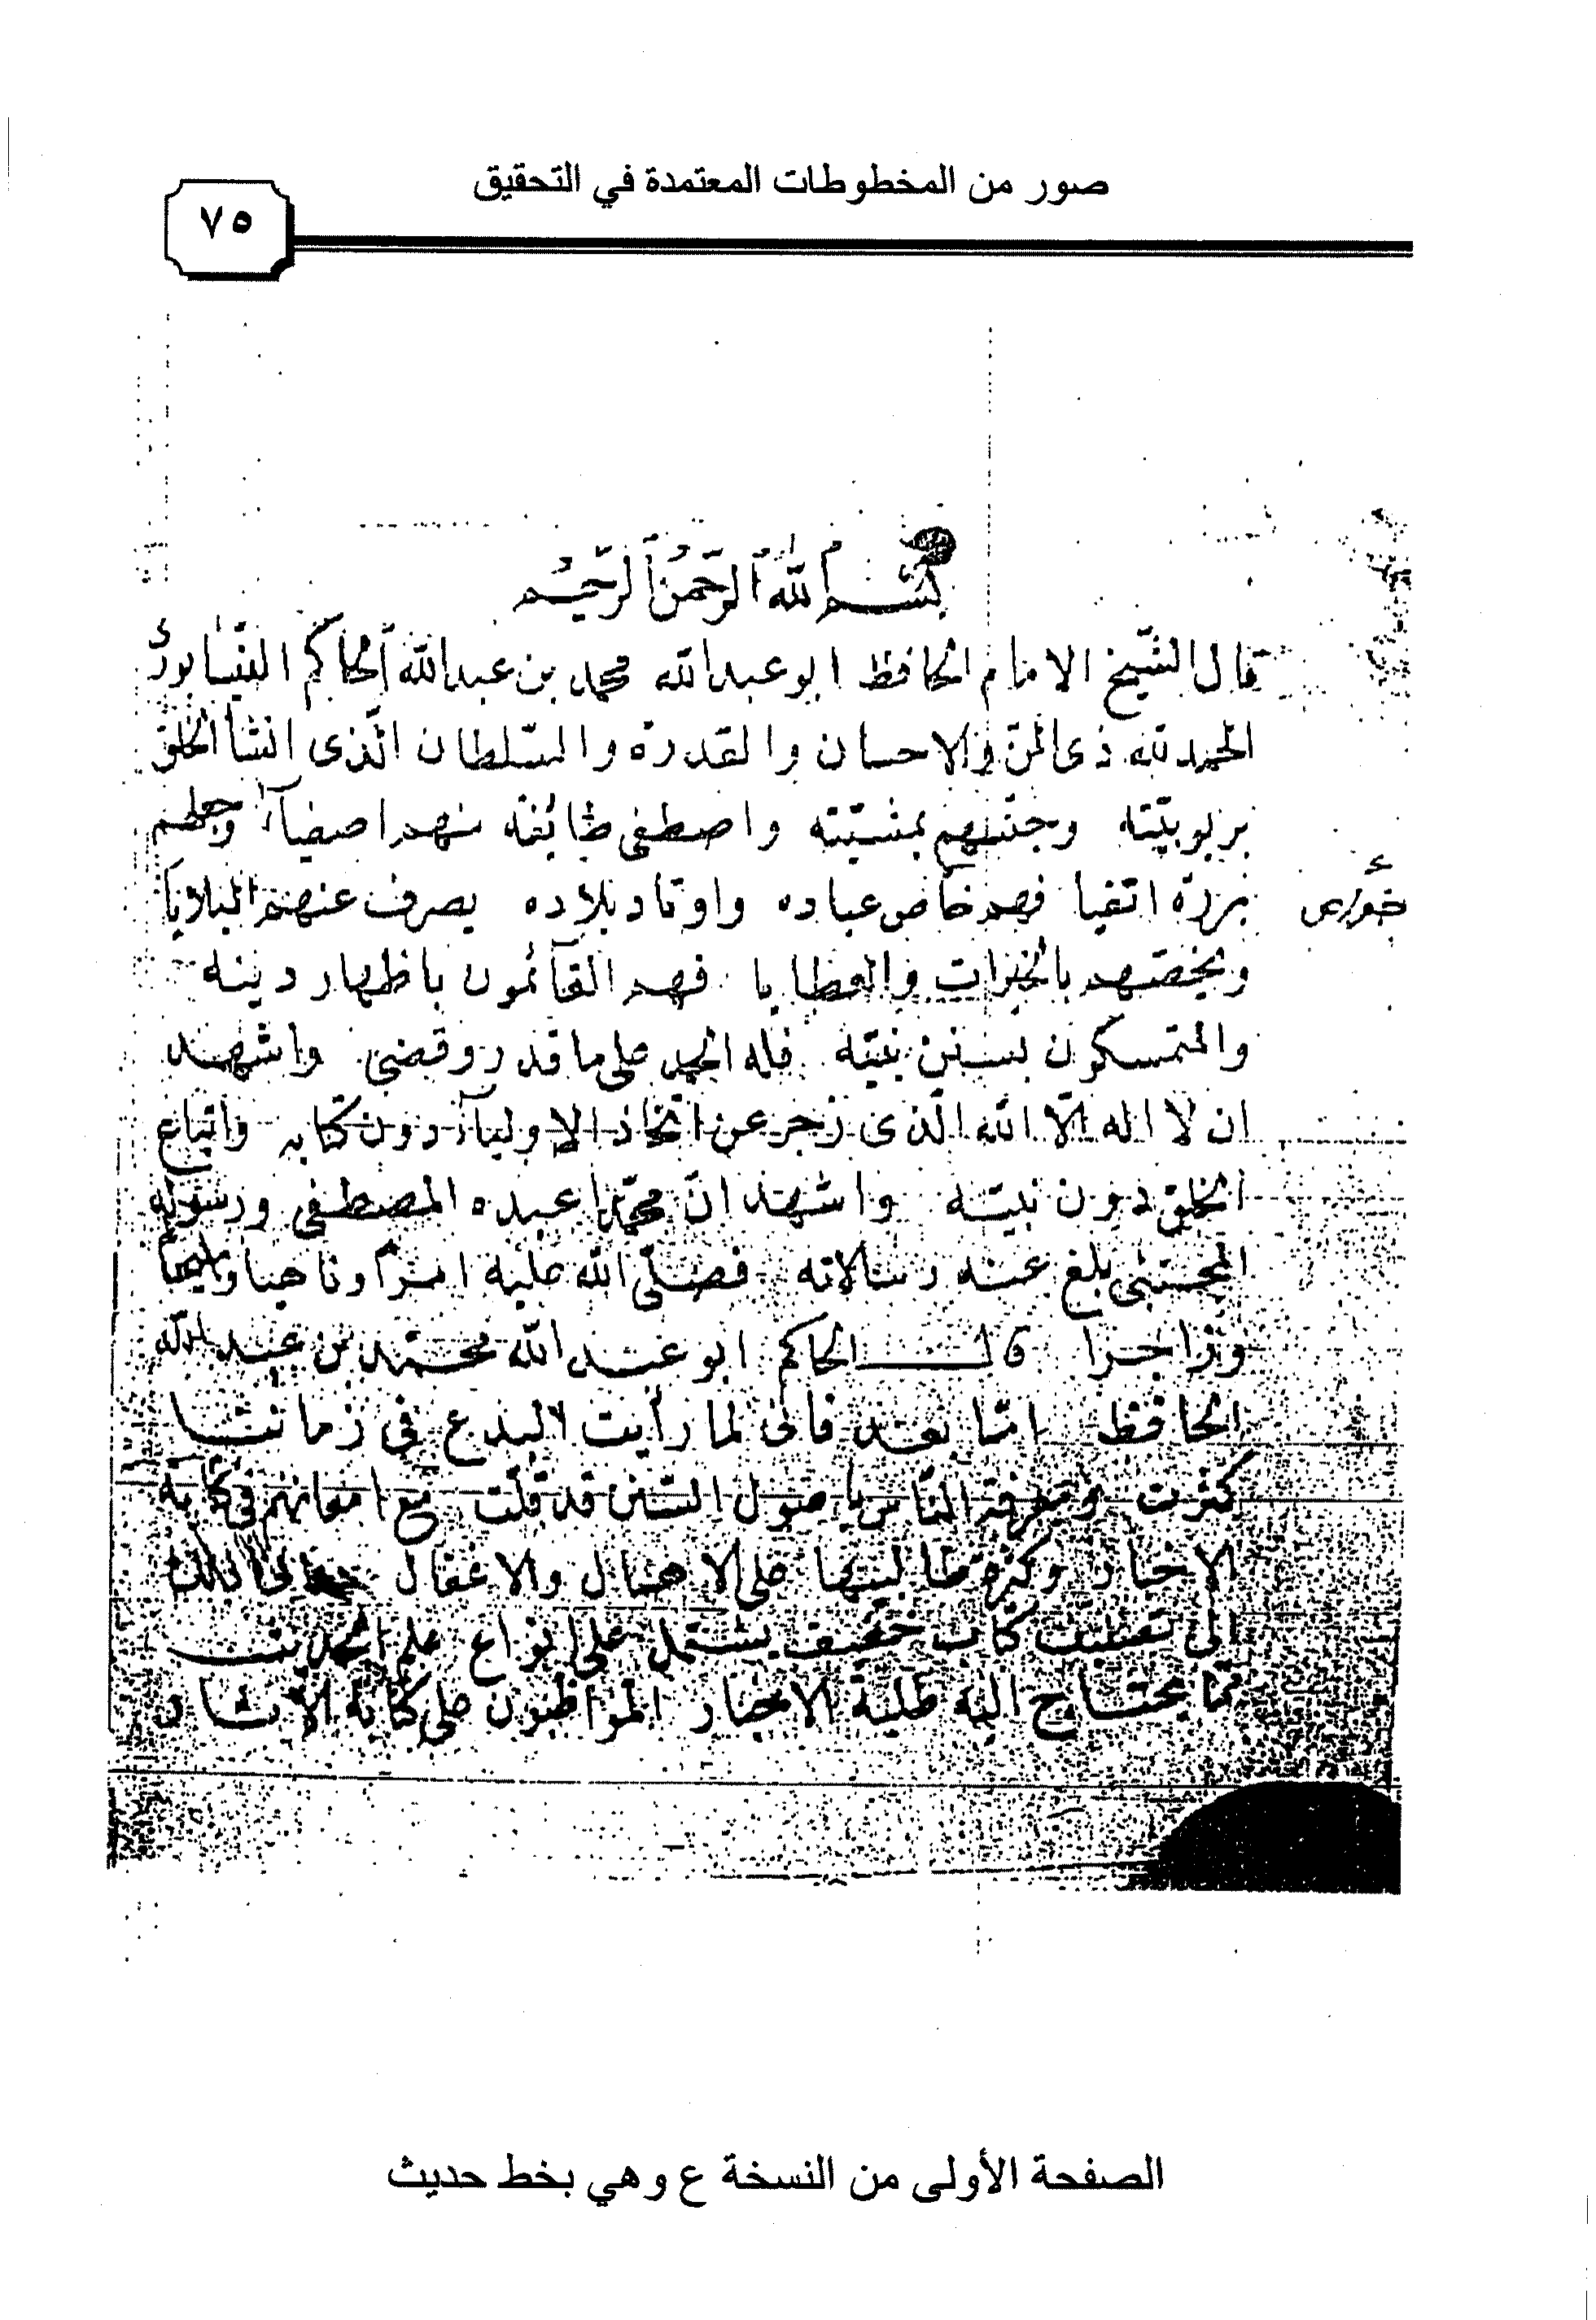 صور من المخطوطات المعتمدة في التحقيق
٧٥
بسم الله الرحمن الرحيم
قال الشيخ الامام الحافظ ابو عبد الله محمد بن عبد الله الحاكم النيسابورى
الحمد لله ذى المن والاحسان والقدرة والسلطان الذى انشأ الخلق
بربوبيته وجنسهم بمشيته واصطفى طائفة منهم اصفياء وجعلهم
بررة اتقيا فهم خاص عباده واوتاد بلاده يصرف عنهم البلايا
ويخصهم بالخيرات والعطايا فهم القائمون باظهار دينه
والمتمسكون بسنن نبيه فله الحمد على ما قدر وقضى واشهد
ان لا اله الا الله الذى زجر عن اتخاذ الاولياء دون كتابه واتباع
الخلق دون نبيه واشهد ان محمدا عبده المصطفى ورسوله
المجتبى بلغ عنه رسالاته فصلى الله عليه امرا وناهيا
وزاجرا قال الحاكم ابو عبد الله محمد بن عبد الله
الحافظ اما بعد فانى لما رأيت البدع فى زماننا
كثرت ومعرفة الناس باصول السنن قد قلت مع امعانهم فى كتابة
الاخبار وكثرة طالبيها على الاهمال والاغفال ذلك
الى تصنيف كتاب خفيف يشتمل على انواع علم الحديث
مما يحتاج اليه طلبة الاخبار المواظبون على كتابة الاثار
الصفحة الأولى من النسخة ع وهي بخط حديث